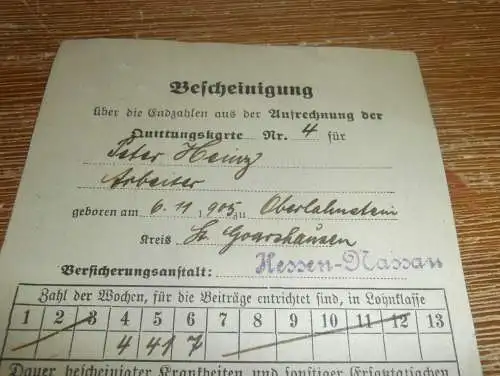 Bescheinigung
über die Endzahlen aus der Aufrechnung der
Quittungskarte Nr. 4 für
Peter Heinz
Arbeiter
geboren am 6. 11. 1905 zu Oberlahnstein
Kreis St Goarshausen
Versicherungsanstalt: Hessen-Nassau
Zahl der Wochen, für die Beiträge entrichtet sind, in Lohnklasse
1 2 3 4 5 6 7 8 9 10 11 12 13
4 41 7
Dauer bescheinigter Krankheiten und sonstiger Ersatztatsachen